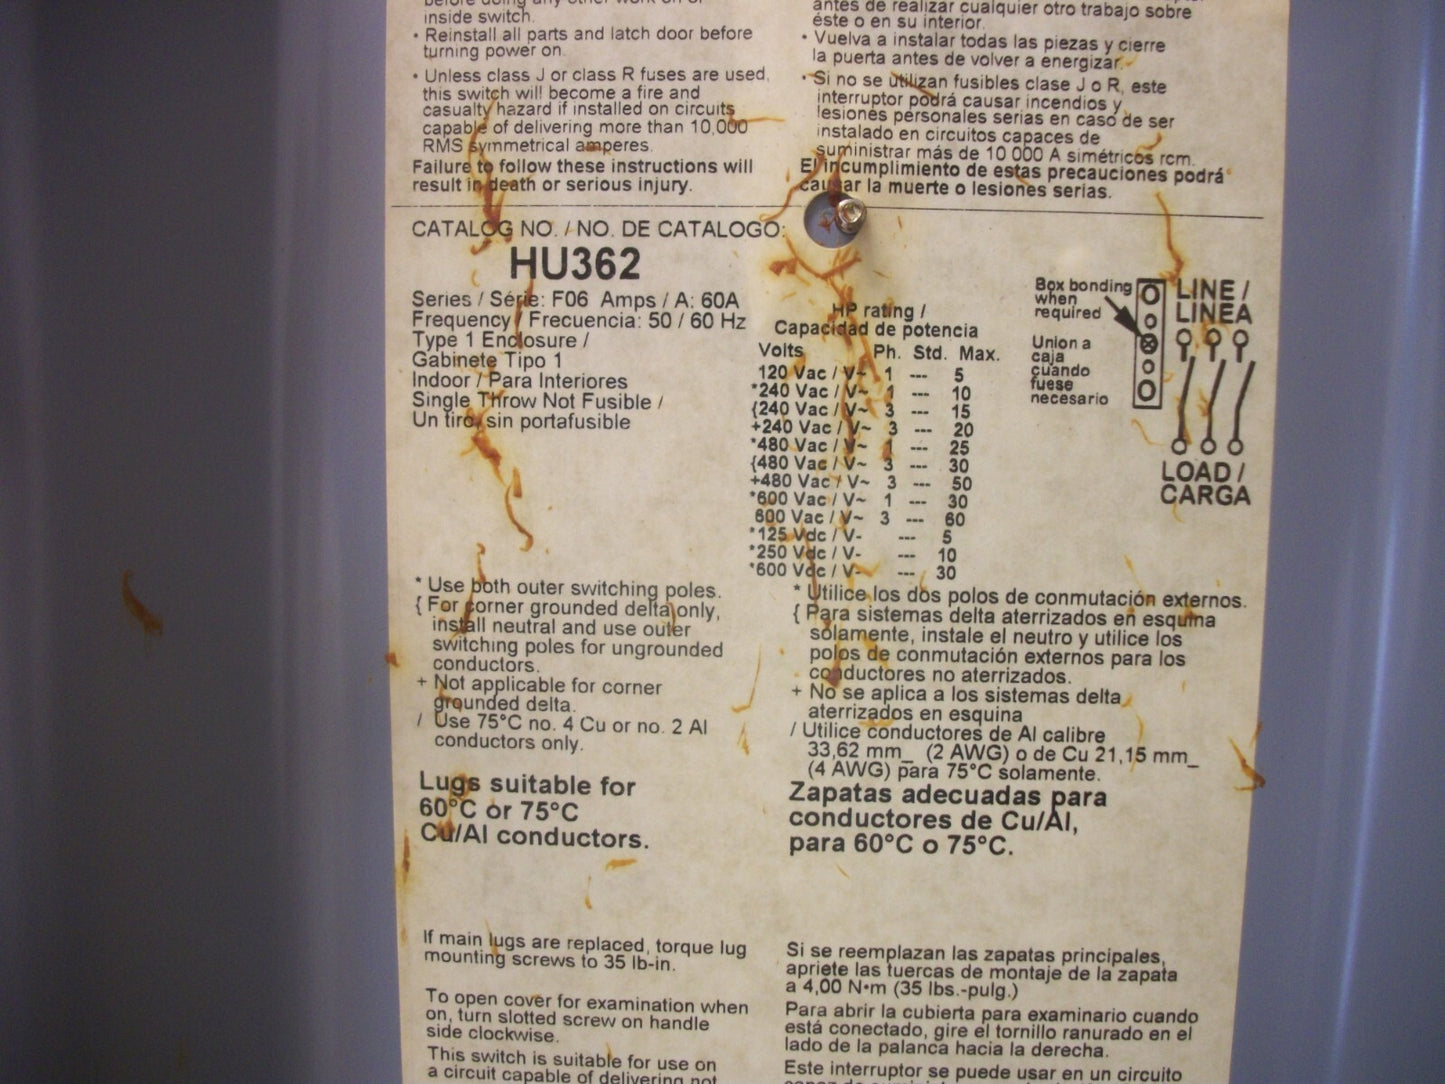 inside switch.
• Reinstall all parts and latch door before
turning power on.
• Unless class J or class R fuses are used,
this switch will become a fire and
casualty hazard if installed on circuits
capable of delivering more than 10,000
RMS symmetrical amperes.
Failure to follow these instructions will
result in death or serious injury.
antes de realizar cualquier otro trabajo sobre
éste o en su interior.
• Vuelva a instalar todas las piezas y cierre
la puerta antes de volver a energizar.
• Si no se utilizan fusibles clase J o R, este
interruptor podrá causar incendios y
lesiones personales serias en caso de ser
instalado en circuitos capaces de
suministrar más de 10 000 A simétricos rcm.
El incumplimiento de estas precauciones podrá
causar la muerte o lesiones serias.
CATALOG NO. / NO. DE CATALOGO:
HU362
Series / Série: F06 Amps / A: 60A
Frequency / Frecuencia: 50 / 60 Hz
Type 1 Enclosure /
Gabinete Tipo 1
Indoor / Para Interiores
Single Throw Not Fusible /
Un tiro, sin portafusible
HP rating /
Capacidad de potencia
Volts Ph. Std. Max.
120 Vac / V~ 1 --- 5
*240 Vac / V~ 1 --- 10
{240 Vac / V~ 3 --- 15
+240 Vac / V~ 3 --- 20
*480 Vac / V~ 1 --- 25
{480 Vac / V~ 3 --- 30
+480 Vac / V~ 3 --- 50
*600 Vac / V~ 1 --- 30
600 Vac / V~ 3 --- 60
*125 Vdc / V- --- 5
*250 Vdc / V- --- 10
*600 Vdc / V- --- 30
Box bonding
when
required
Union a
caja
cuando
fuese
necesario
LINE /
LINEA
LOAD /
CARGA
* Use both outer switching poles.
{ For corner grounded delta only,
install neutral and use outer
switching poles for ungrounded
conductors.
+ Not applicable for corner
grounded delta.
/ Use 75°C no. 4 Cu or no. 2 Al
conductors only.
* Utilice los dos polos de conmutación externos.
{ Para sistemas delta aterrizados en esquina
solamente, instale el neutro y utilice los
polos de conmutación externos para los
conductores no aterrizados.
+ No se aplica a los sistemas delta
aterrizados en esquina
/ Utilice conductores de Al calibre
33,62 mm_ (2 AWG) o de Cu 21,15 mm_
(4 AWG) para 75°C solamente.
Lugs suitable for
60°C or 75°C
Cu/Al conductors.
Zapatas adecuadas para
conductores de Cu/Al,
para 60°C o 75°C.
If main lugs are replaced, torque lug
mounting screws to 35 lb-in.
To open cover for examination when
on, turn slotted screw on handle
side clockwise.
This switch is suitable for use on
a circuit capable of delivering not
Si se reemplazan las zapatas principales,
apriete las tuercas de montaje de la zapata
a 4,00 N•m (35 lbs.-pulg.)
Para abrir la cubierta para examinario cuando
está conectado, gire el tornillo ranurado en el
lado de la palanca hacia la derecha.
Este interruptor se puede usar en un circuito